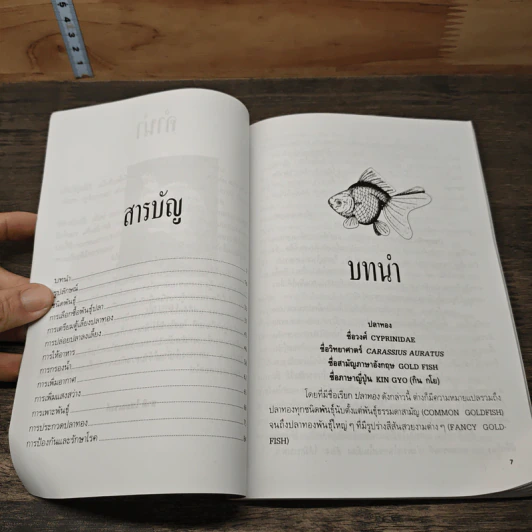 สารบัญ
บทนำ
รูปลักษณ์
ชนิดพันธุ์
การเลือกซื้อพันธุ์ปลา
การเตรียมตู้เลี้ยงปลาทอง
การปล่อยปลาลงเลี้ยง
การให้อาหาร
การกรองน้ำ
การเพิ่มอากาศ
การเพิ่มแสงสว่าง
การเพาะพันธุ์
การประกวดปลาทอง
การป้องกันและรักษาโรค
บทนำ
ปลาทอง
ชื่อวงศ์ CYPRINIDAE
ชื่อวิทยาศาสตร์ CARASSIUS AURATUS
ชื่อสามัญภาษาอังกฤษ GOLD FISH
ชื่อภาษาญี่ปุ่น KIN GYO (กิน กโย)
โดยที่มีชื่อเรียก ปลาทอง ดังกล่าวนี้ ต่างก็มีความหมายแปลรวมถึง
ปลาทองทุกชนิดพันธุ์นับตั้งแต่พันธุ์ธรรมดาสามัญ (COMMON GOLDFISH)
จนถึงปลาทองพันธุ์ใหญ่ ๆ ที่มีรูปร่างสีสันสวยงามต่าง ๆ (FANCY GOLD-
FISH)
7